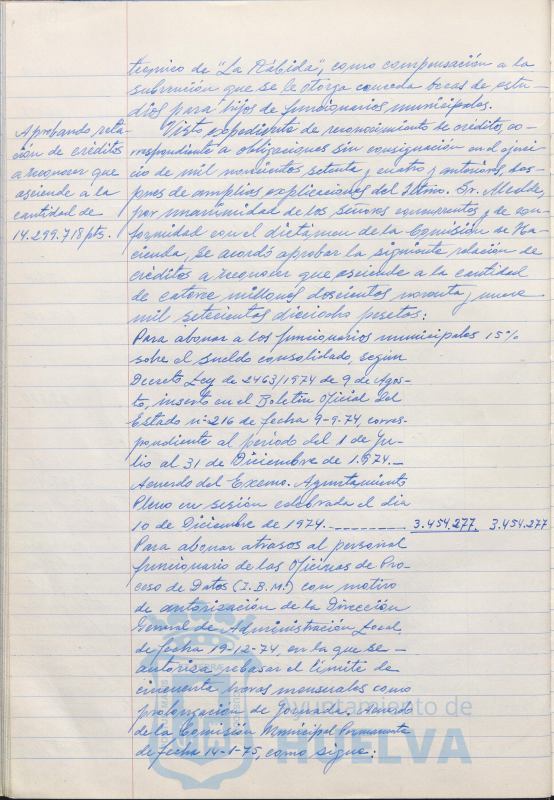 técnico de "La Rábida", como compensación a la
subvención que se le otorga conceda becas de estu-
dios para hijos de funcionarios municipales.
Aprobando rela-
ción de créditos
a reconocer que
asciende a la
cantidad de
14.299.718 pts.
Visto expediente de reconocimiento de créditos, co-
rrespondiente a obligaciones sin consignación en el ejerci-
cio de mil novecientos setenta y cuatro y anteriores, des-
pues de amplias explicaciones del Iltmo. Sr. Alcalde,
por unanimidad de los Señores concurrentes y de con-
formidad con el dictámen de la Comisión de Ha-
cienda, se acordó aprobar la siguiente relación de
créditos a reconocer que asciende a la cantidad
de catorce millones doscientas noventa y nueve
mil setecientas dieciocho pesetas:
Para abonar a los funcionarios municipales 15%
sobre el sueldo consolidado, según
Decreto Ley de 2463/1974 de 9 de Agos-
to, inserto en el Boletín Oficial del
Estado nº 216 de fecha 9-9-74, corres-
pondiente al período del 1 de Ju-
lio al 31 de Diciembre de 1.974.-
Acuerdo del Excmo. Ayuntamiento
Pleno en sesión celebrada el día
10 de Diciembre de 1974. ---------- 3.454.277. 3.454.277
Para abonar atrasos al personal
funcionario de las Oficinas de Pro-
ceso de Datos (I.B.M.) con motivo
de autorización de la Dirección
General de Administración Local,
de fecha 19-12-74, en la que se -
autoriza rebasar el límite de
cincuenta horas mensuales como
prolongación de Jornada, Acuerdo
de la Comisión Municipal Permanente
de fecha 14-1-75, como sigue:
Ayuntamiento de
HUELVA